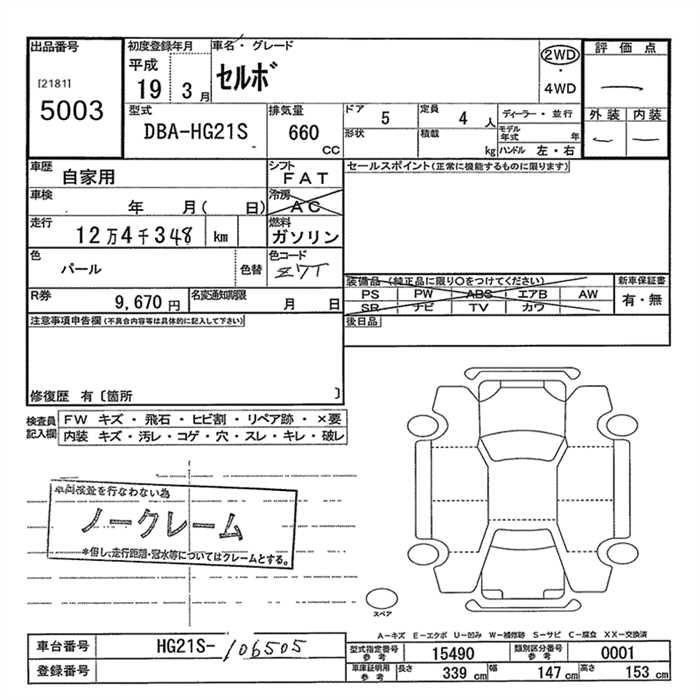 出品番号
[2181]
5003
初度登録年月
平成
19 3 月
車名・グレード
セルボ
2WD
・
4WD
評価点
外装 内装
型式
DBA-HG21S
排気量
660
CC
ドア 5
定員 4 人
ディーラー・並行
形状
積載 kg
モデル年式 年
ハンドル 左・右
車歴
自家用
シフト
FAT
車検
年 月( 日)
冷房
AC
走行
12万4千348 km
燃料
ガソリン
色
パール
色替
色コード
Z7T
R券
9,670 円
名変通知期限
月 日
注意事項申告欄(不具合内容等は具体的に記入して下さい)
修復歴 有〔箇所 〕
セールスポイント(正常に機能するものに限ります)
装備品(純正品に限り〇をつけてください)
PS PW ABS エアB AW
SR ナビ TV カワ
新車保証書
有・無
後日品
検査員記入欄
FW キズ・飛石・ヒビ割・リペア跡・×要
内装 キズ・汚レ・コゲ・穴・スレ・キレ・破レ
車両検査を行なわない為
ノークレーム
*但し、走行距離・冠水等についてはクレームとする。
スペア
A－キズ E－エクボ U－凹み W－補修跡 S－サビ C－腐食 XX－交換済
車台番号
HG21S-106505
登録番号
型式指定番号参考
15490
類別区分番号参考
0001
車庫証明用参考
長さ 339 cm
幅 147 cm
高さ 153 cm